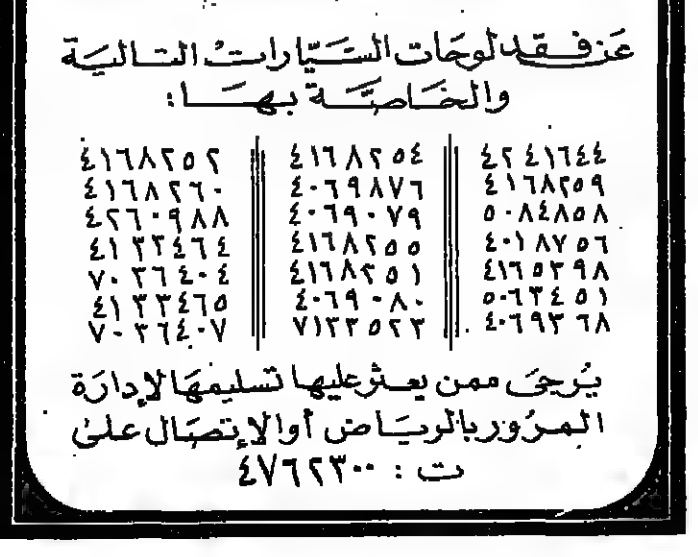 عن فقد لوحات السيارات التالية
والخاصة بها:
٤٢٤١٦٤٤ ٤١٦٨٢٥٤ ٤١٦٨٢٥٢
٤١٦٨٢٥٩ ٤٠٦٩٨٧٦ ٤١٦٨٢٦٠
٥٠٨٤٨٥٨ ٤٠٦٩٠٧٩ ٤٢٦٠٩٨٨
٤٠١٨٧٥٦ ٤١٦٨٢٥٥ ٤١٣٣٤٦٤
٤١٦٥٣٩٨ ٤١٦٨٢٥١ ٧٠٣٦٤٠٤
٥٠٦٣٤٥١ ٤٠٦٩٠٨٠ ٤١٣٣٤٦٥
٤٠٦٩٣٦٨ ٧١٣٣٥٢٣ ٧٠٣٦٤٠٧
يُرجىَ ممن يعثر عليها تسليمهَا لإدارَة
المرُور بالريَاض أو الإتصَال على
ت : ٤٧٦٢٣٠٠